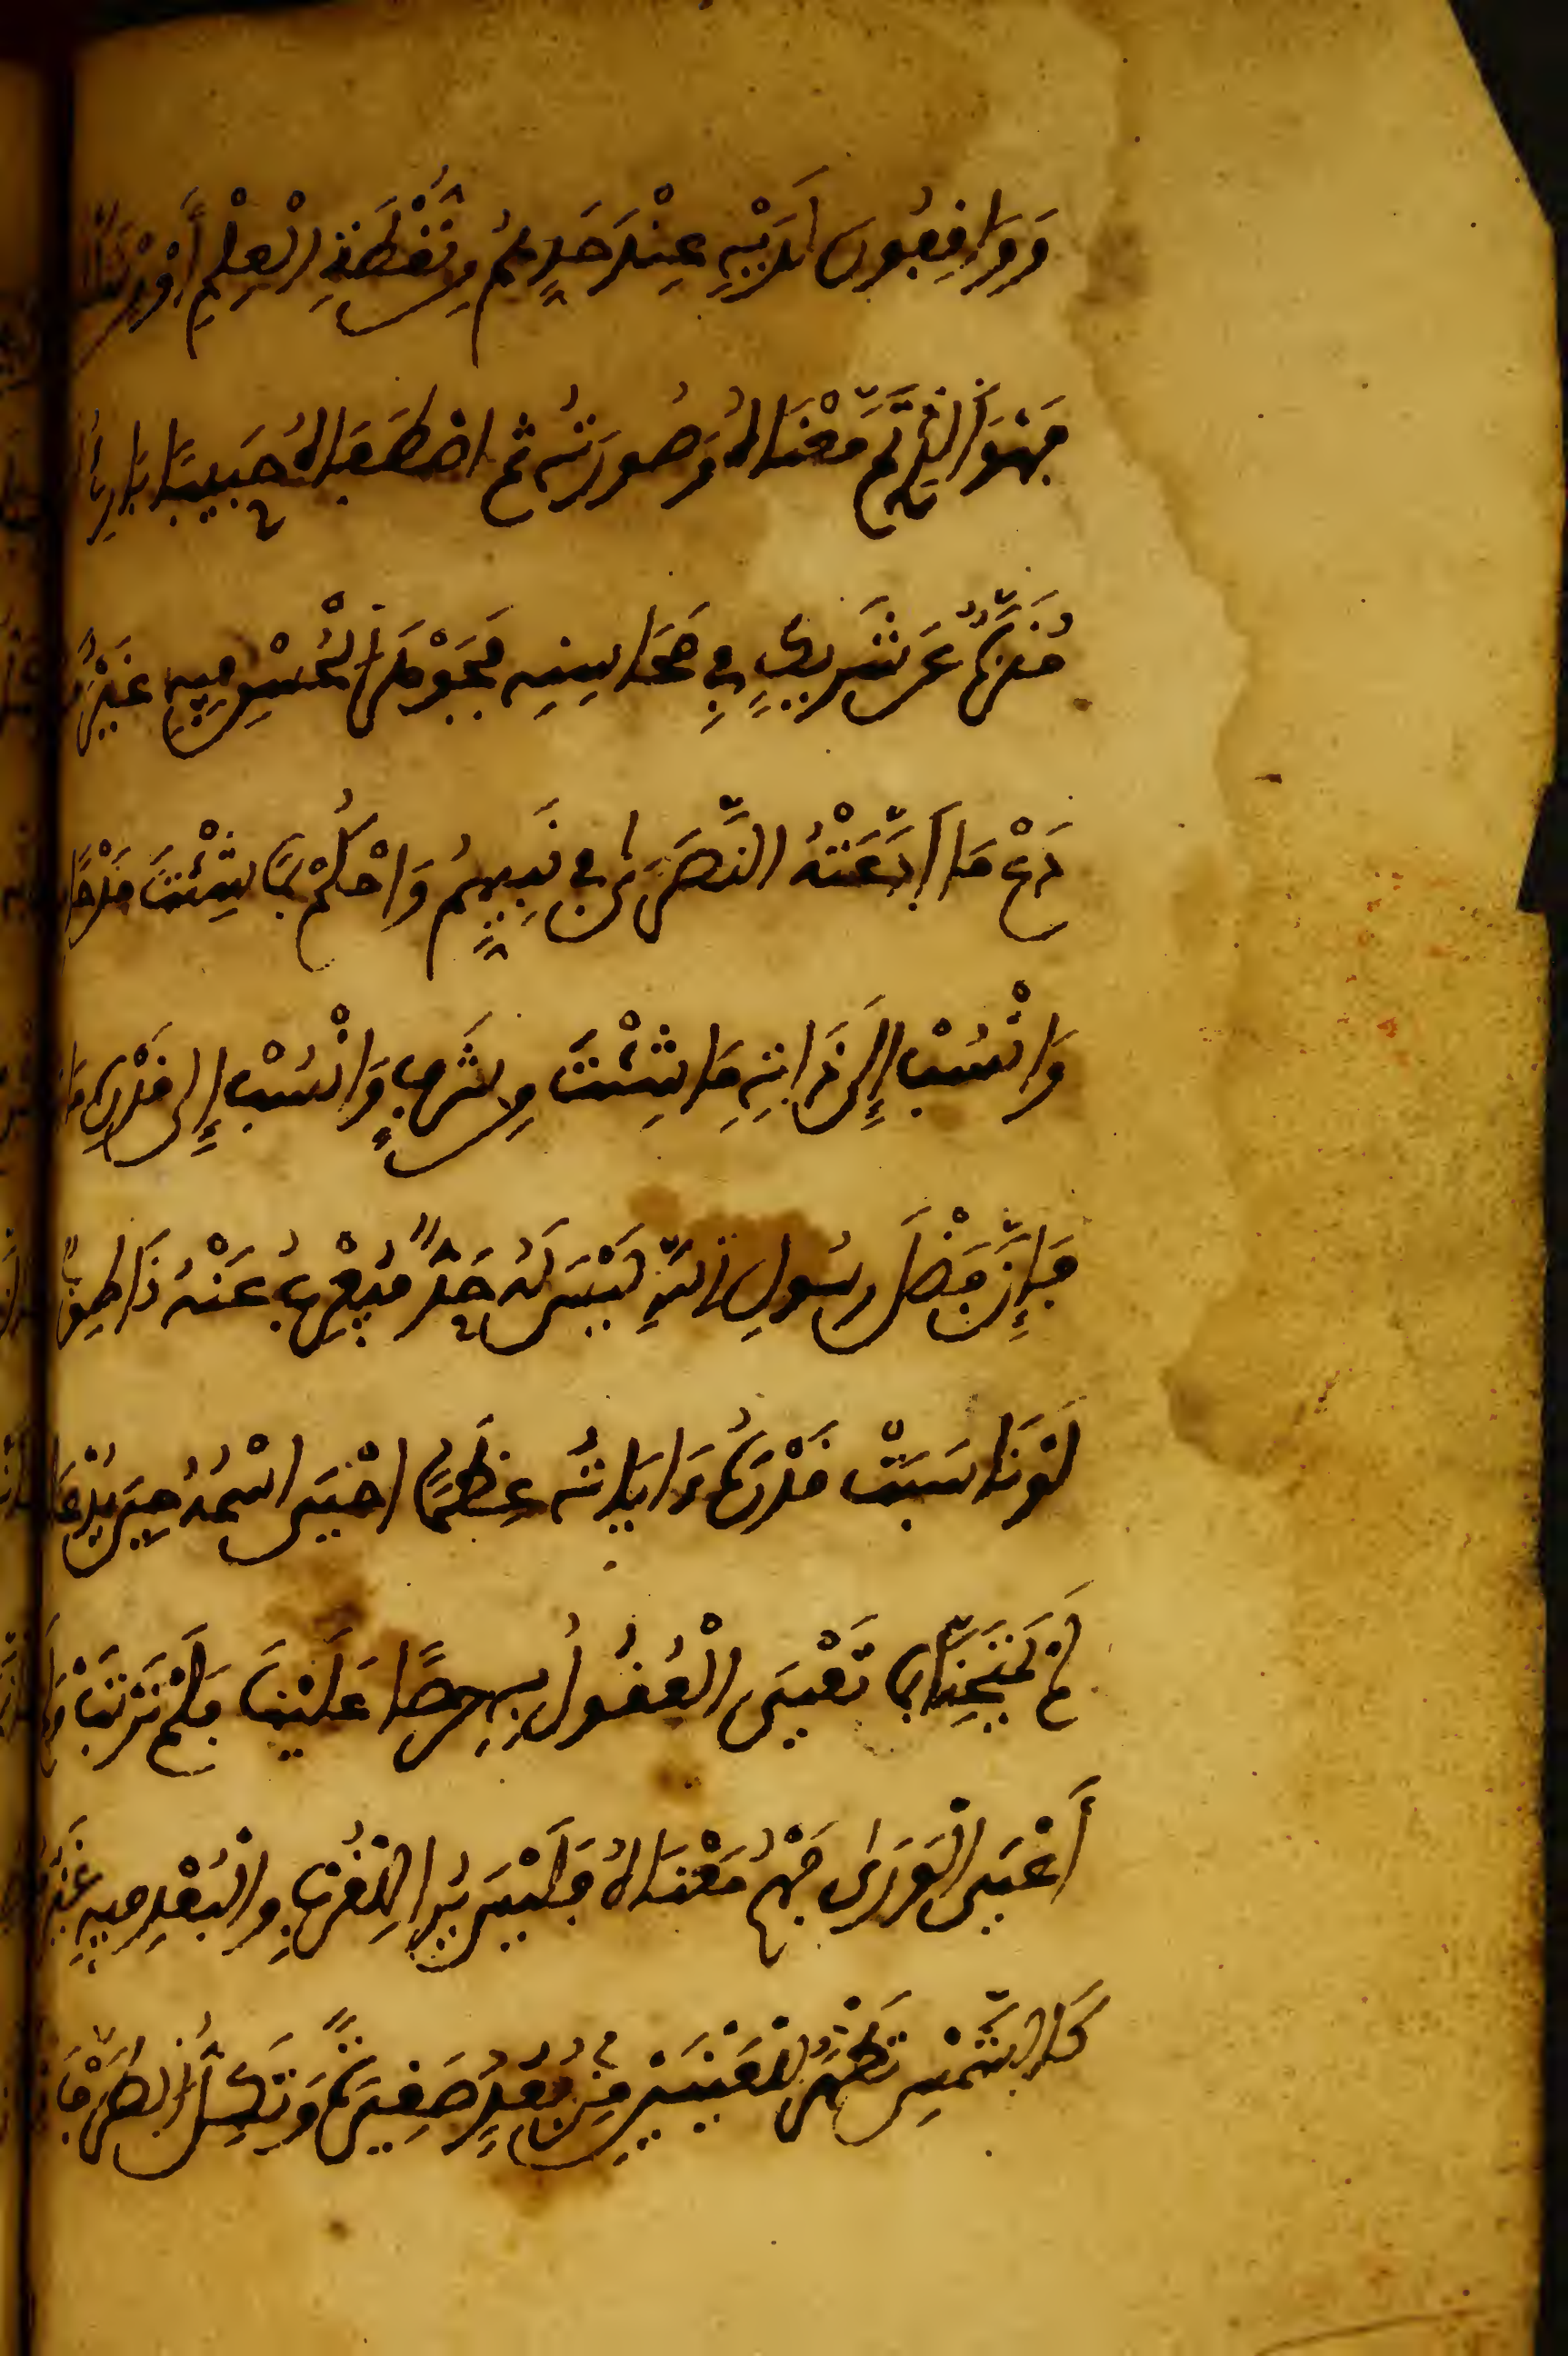 وَوَاقِفُونَ لَدَيْهِ عِنْدَ حَدِّهِمُ مِنْ نُقْطَةِ الْعِلْمِ أَوْ مِنْ
فَهْوَ الَّذِي تَمَّ مَعْنَاهُ وَصُورَتُهُ ثُمَّ اصْطَفَاهُ حَبِيبًا بَارِئُ
مُنَزَّهٌ عَنْ شَرِيكٍ فِي مَحَاسِنِهِ فَجَوْهَرُ الْحُسْنِ فِيهِ غَيْرُ
دَعْ مَا ادَّعَتْهُ النَّصَارَى فِي نَبِيِّهِمُ وَاحْكُمْ بِمَا شِئْتَ مَدْحًا
وَانْسُبْ إِلَى ذَاتِهِ مَا شِئْتَ مِنْ شَرَفٍ وَانْسُبْ إِلَى قَدْرِهِ مَا
فَإِنَّ فَضْلَ رَسُولِ اللَّهِ لَيْسَ لَهُ حَدٌّ فَيُعْرِبُ عَنْهُ نَاطِقٌ
لَوْ نَاسَبَتْ قَدْرَهُ ءَايَاتُهُ عِظَمًا احْيَى اسْمُهُ حِينَ يُدْعَى
لَمْ يَمْتَحِنَّا بِمَا تَعْيَى الْعُقُولُ بِهِ حِرْصًا عَلَيْنَا فَلَمْ نَرْتَبْ وَلَمْ
أَعْيَى الْوَرَى فَهْمُ مَعْنَاهُ فَلَيْسَ يُرَى لِلْقُرْبِ وَالْبُعْدِ فِيهِ غَيْرُ
كَالشَّمْسِ تَظْهَرُ لِلْعَيْنَيْنِ مِنْ بُعُدٍ صَغِيرَةً وَتَكِلُّ الطَّرْفَ